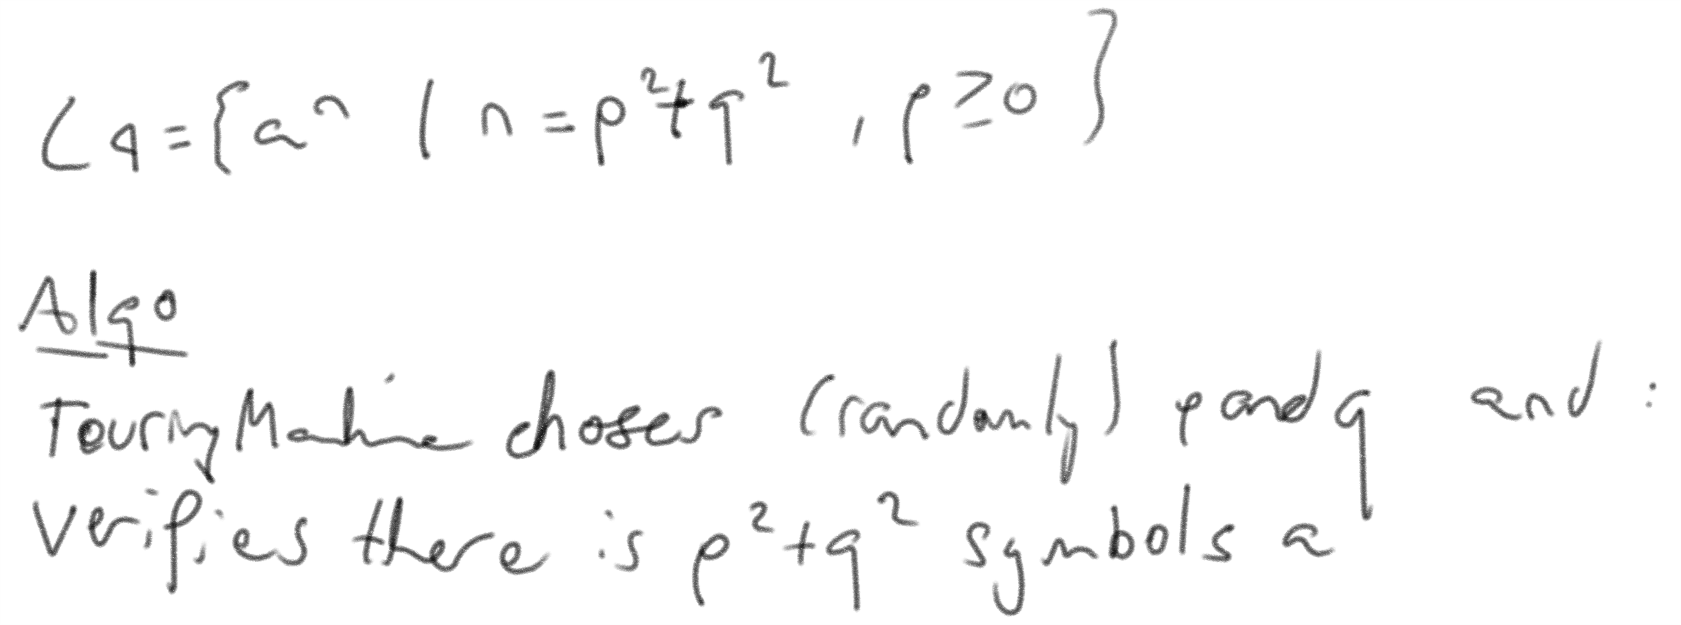 L4 = {aⁿ | n = p² + q², p ≥ 0}
Algo
Touring Machine choses (randomly) p and q and :
verifies there is p² + q² symbols a